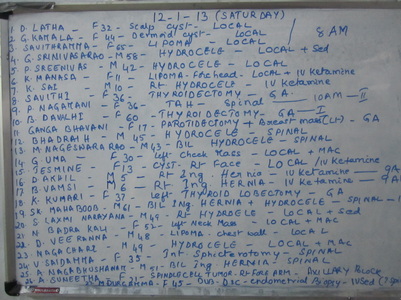 12-1-13 (SATURDAY)
1. D. LATHA - F 32 - Scalp cyst - LOCAL
2. G. KAMALA - F 44 - Dermoid cyst - LOCAL
3. SAVITHRAMMA - F 65 - LIPOMA - LOCAL
8 AM
4. G. SRINIVASARAO - M 58 - HYDROCELE - LOCAL + Sed
5. P. SREENIVAS - M 42 - HYDROCELE - LOCAL
6. K. MANASA - F 11 - LIPOMA - Forehead - LOCAL + IV Ketamine
7. K. SAI - M 10 - Rt HYDROCELE - IV Ketamine
8. SAVITHI - F 36 - THYROIDECTOMY - GA
9. P. NAGAMANI - F 36 - TAH - Spinal - 10AM - II
10. B. DAVLHI - F 60 - THYROIDECTOMY - GA - I
11. GANGA BHAVANI - F 17 - PAROTIDECTOMY + Breast mass (Lt) - GA
12. BHADRAM - M 45 - HYDROCELE - SPINAL
13. M. NAGESWARARAO - M 43 - BIL HYDROCELE - SPINAL
14. G. UMA - F 30 - left Cheek Mass - LOCAL + MAC
15. YESMINE - F 13 - CYST - Rt Face - LOCAL / IV Ketamine
16. D. AKHIL - M 5 - Rt Ing. Hernia - IV Ketamine - 9A
17. B. VAMSI - M 6 - Rt Ing Hernia - IV Ketamine - 9A
18. K. KUMARI - F 37 left THYROID LOBECTOMY - GA
19. SK. MAHABOOB - M 61 - BIL ING. HERNIA + HYDROCELE - SPINAL
20. S. LAXMI NARAYANA - M 49 - Rt HYDROCELE - LOCAL + Sed
21. N BADRA KALI - F 52 - left Neck Mass - LOCAL + MAC
22. D. VEERANNA - M 48 - LIPOMA - chest wall - LOCAL
23. NAGACHARI - M 49 - HYDROCELE - LOCAL + MAC
24. V SAIDAMMA - F 35 - Int Sphincterotomy - SPINAL
A NAGABHUSHANAM - M 51 - BIL ING. HERNIA - SPINAL
A. SUNEETHA - F 21 - SPINDLECELL TUMOR - Rt FORE ARM - AXILLARY BLOCK
DURGAMMA - F 45 - DUB - D&C - endometrial Biopsy - IV Sed